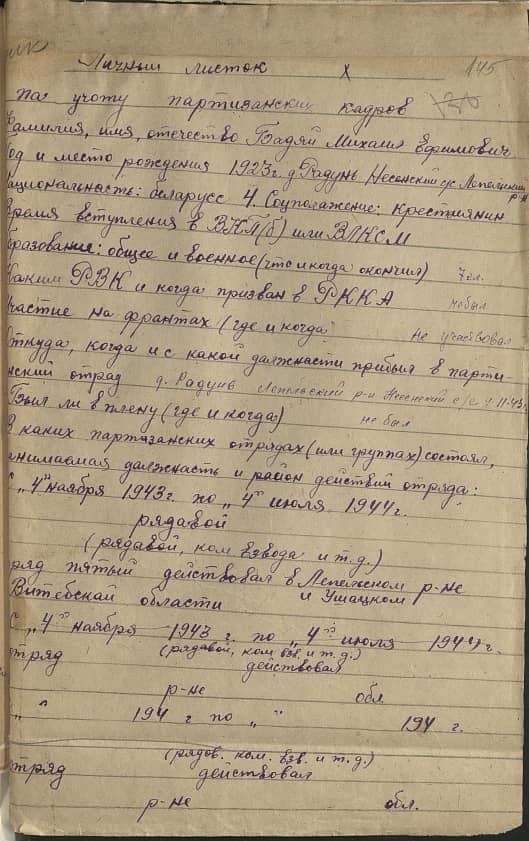 Личный листок х 145
по учоту партизанских кадров
Фамилия, имя, отечество Бадяй Михаил Ефимович
Год и место рождения 1923г. д. Радунь Несенский с/с Лепельский р-н
Национальность: беларусс 4. Соцположение: крестиянин
Время вступления в ВКП(б) или ВЛКСМ
Образование: общее и военное (что и когда окончил) 7 кл.
Каким РВК и когда призван в РККА не был
Участие на франтах (где и когда не участвовал
Откуда, когда и с какой должнасти прибыл в парти
нский отряд д. Радунь Лепельский р-н Несенский с/с 4.11.43г
Был ли в плену (где и когда) не был
В каких партизанских отрядах (или группах) состоял,
занимаемая должнасть и район действий отряда:
С „4" ноября 1943г. по „4" июля 1944г.
рядавой
(рядавой, ком взвода и т.д.)
ряд пятый действовал в Лепельском р-не
и Ушацком
Витебскай области
С „4" ноября 1943 г. по „4" июля 1944 г.
(рядавой, ком. взв. и т.д.)
отряд действовал
р-не обл.
„ " 194 г по „ " 194 г.
(рядов. ком. взв. и т.д.)
отряд действовал
р-не обл.